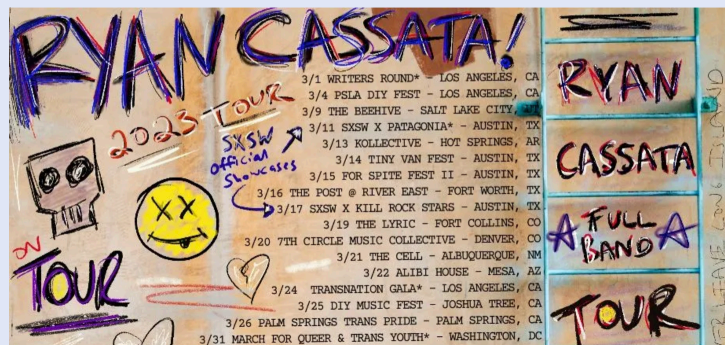 RYAN CASSATA!
2023 TOUR
SXSW
official
Showcases
ON
TOUR
3/1 WRITERS ROUND* - LOS ANGELES, CA
3/4 PSLA DIY FEST - LOS ANGELES, CA
3/9 THE BEEHIVE - SALT LAKE CITY,
3/11 SXSW X PATAGONIA* - AUSTIN, TX
3/13 KOLLECTIVE - HOT SPRINGS, AR
3/14 TINY VAN FEST - AUSTIN, TX
3/15 FOR SPITE FEST II - AUSTIN, TX
3/16 THE POST @ RIVER EAST - FORT WORTH, TX
3/17 SXSW X KILL ROCK STARS - AUSTIN, TX
3/19 THE LYRIC - FORT COLLINS, CO
3/20 7TH CIRCLE MUSIC COLLECTIVE - DENVER, CO
3/21 THE CELL - ALBUQUERQUE, NM
3/22 ALIBI HOUSE - MESA, AZ
3/24 TRANSNATION GALA* - LOS ANGELES, CA
3/25 DIY MUSIC FEST - JOSHUA TREE, CA
3/26 PALM SPRINGS TRANS PRIDE - PALM SPRINGS, CA
3/31 MARCH FOR QUEER & TRANS YOUTH* - WASHINGTON, DC
RYAN
CASSATA
FULL
BAND
TOUR
LONG ISLAND